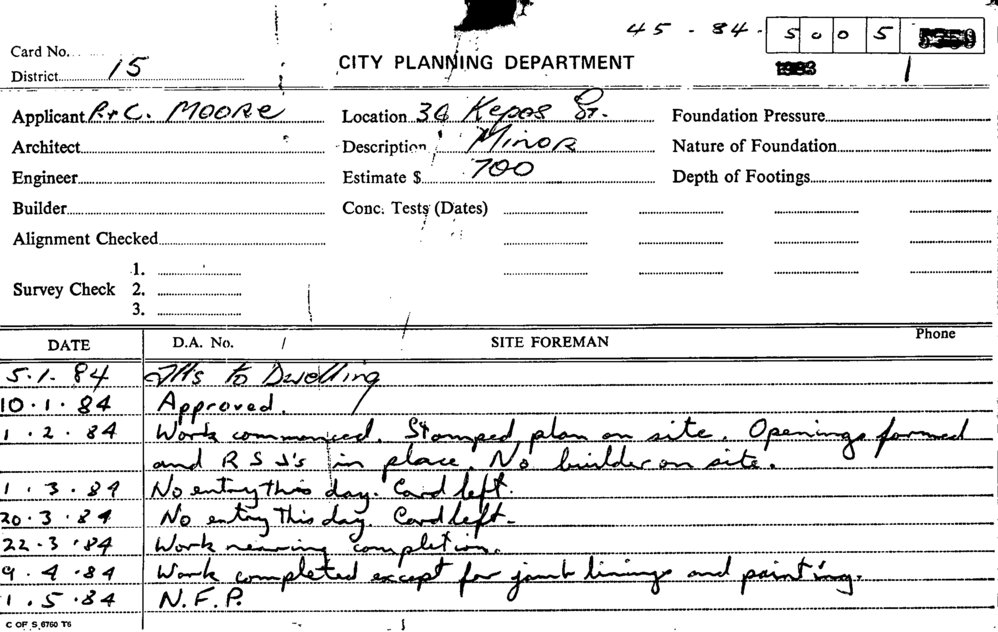 45 - 84 - 5005
Card No.
District 15
CITY PLANNING DEPARTMENT
1983
Applicant P. & C. MOORE Location 36 Kepos St. Foundation Pressure
Architect Description Minor Nature of Foundation
Engineer Estimate $ 700 Depth of Footings
Builder Conc. Tests (Dates)
Alignment Checked
1.
Survey Check 2.
3.
DATE D.A. No. SITE FOREMAN Phone
5.1.84 to Dwelling
10.1.84 Approved.
1.2.84 Work commenced. Stamped plan on site. Openings formed
and RSJ's in place. No builder on site.
1.3.84 No entry this day. Card left.
20.3.84 No entry This day. Card left.
22.3.84 Work nearing completion.
9.4.84 Work completed except for jamb linings and painting.
1.5.84 N.F.P.
C OF S 6760 T6